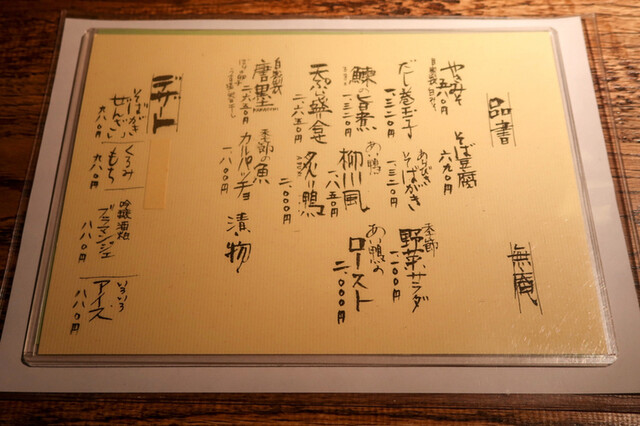 品書
無庵
やきみそ
自家製甘みそ
五八〇円
そば豆腐
六九〇円
だし巻玉子
一、三二〇円
あらびき
そばがき
一、三二〇円
季節
野菜サラダ
一、一〇〇円
鰊の旨煮
一、三二〇円
あい鴨
柳川風
一、八五〇円
あい鴨の
ロースト
二、〇〇〇円
天ぷら盛合
二、六五〇円
炙り鴨
二、〇〇〇円
自家製
唐墨
二、六五〇円
季節の魚
カルパッチョ
一、八〇〇円
漬物
デザート
そばがき
ぜんざい
九八〇円
くるみ
もち
九八〇円
吟醸酒粕
ブラマンジェ
八八〇円
いろいろ
アイス
八八〇円